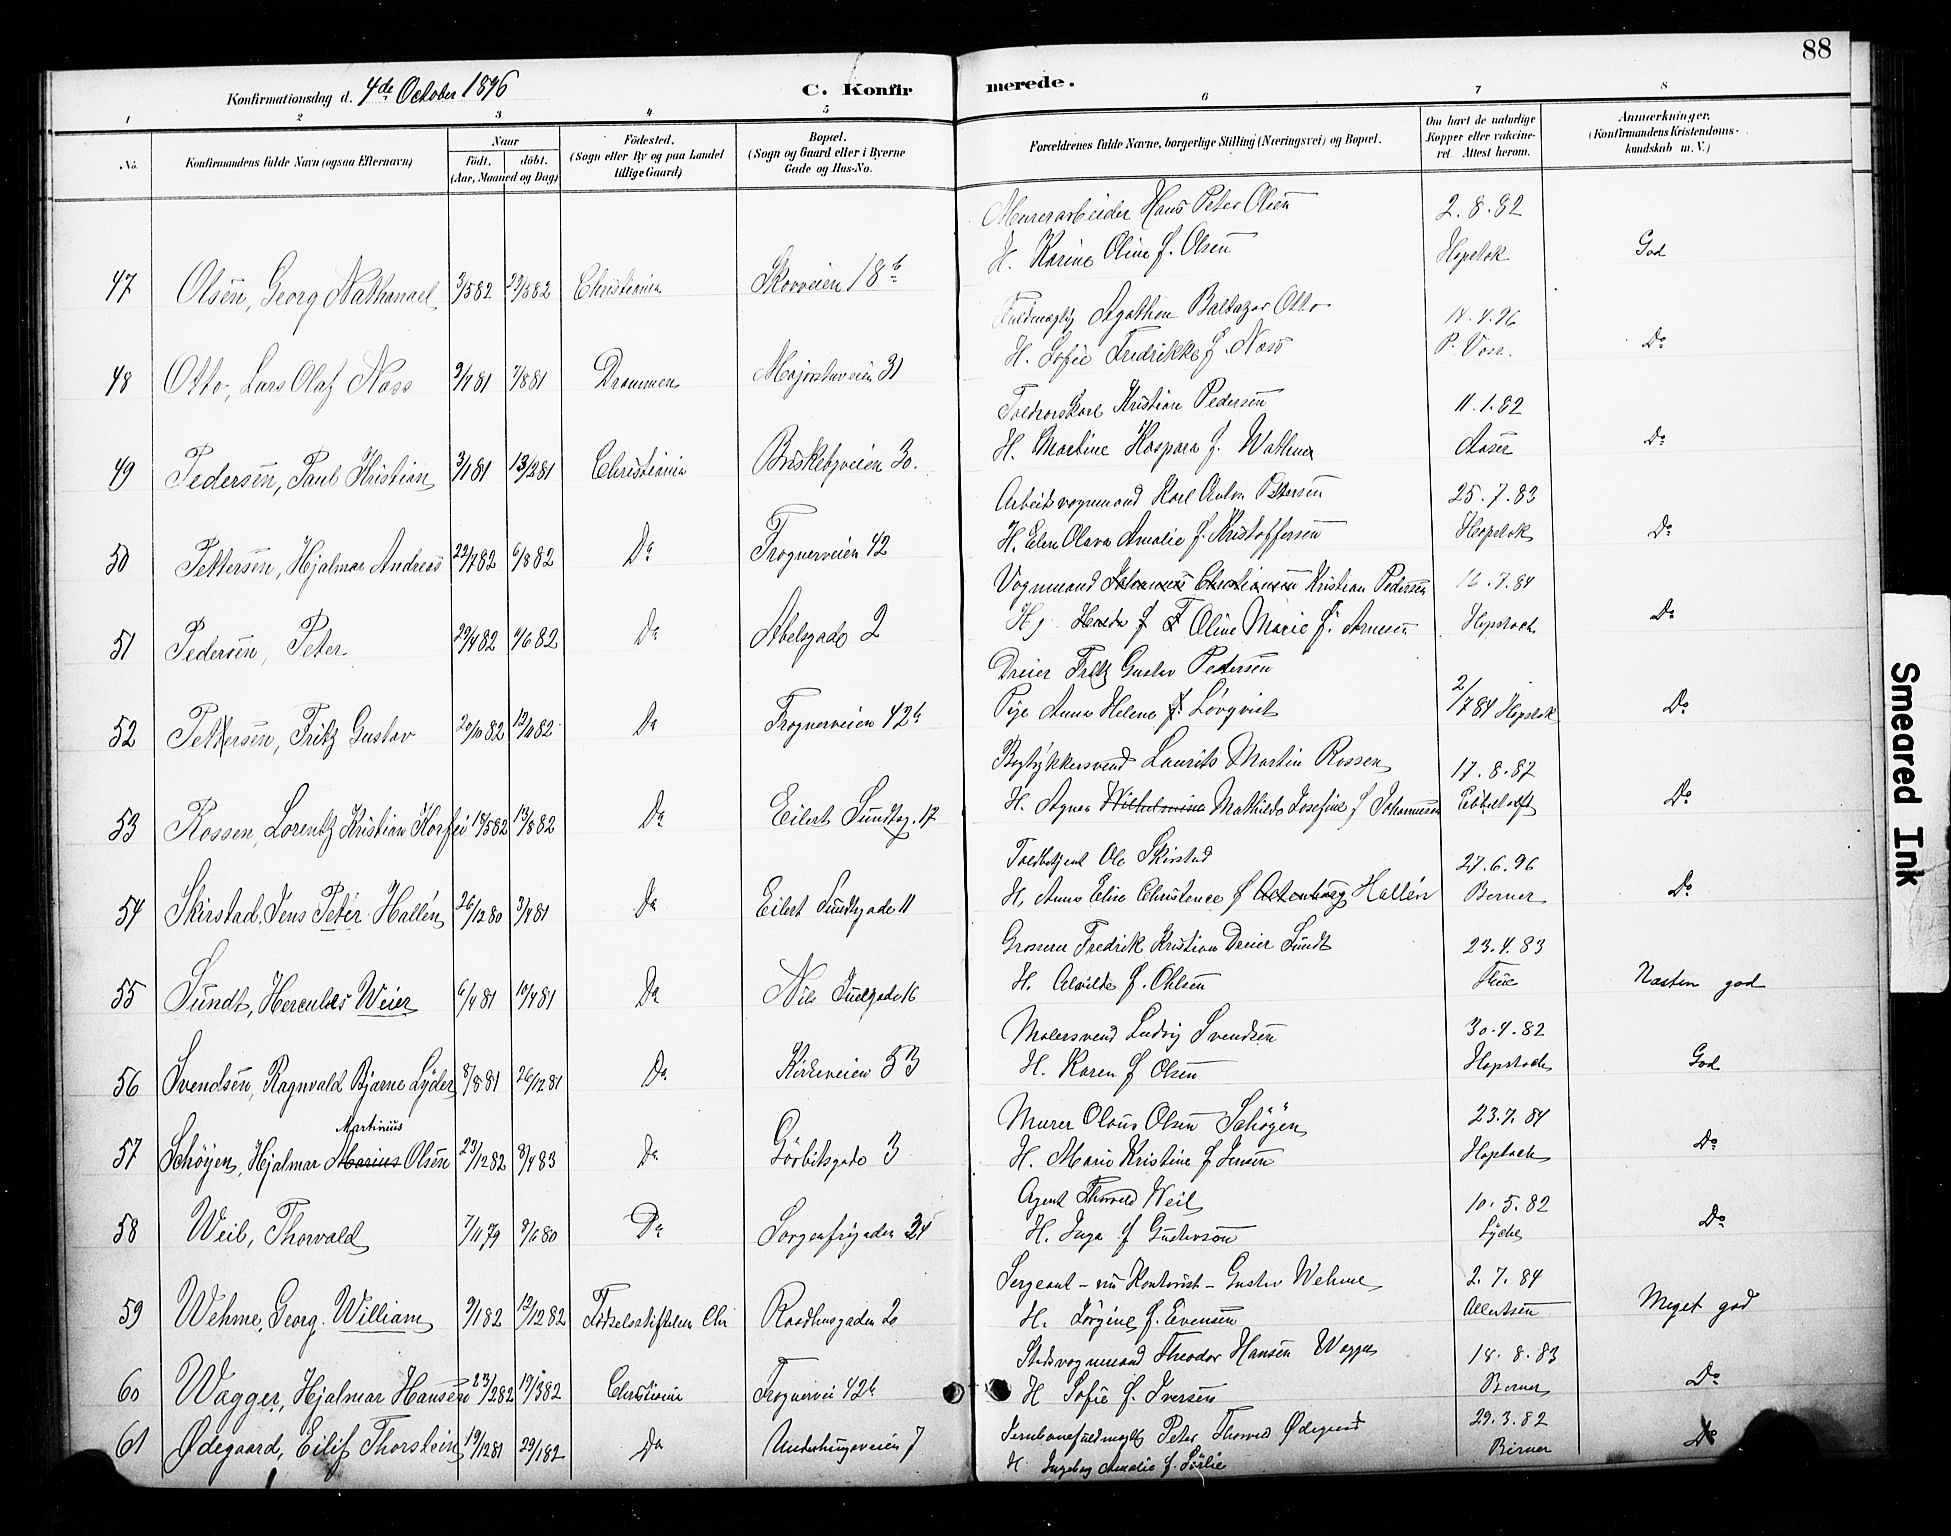 88
Konfirmationsdag d. 4de October 1896
C. Konfirmerede.
1 2 3 4 5 6 7 8
No.
Konfirmandens fulde Navn (ogsaa Efternavn)
Naar
født, døbt.
(Aar, Maaned og Dag)
Fødested.
(Sogn eller By og paa Landet
tillige Gaard)
Bopæl.
(Sogn og Gaard eller i Byerne
Gade og Hus-No.
Forældrenes fulde Navne, borgerlige Stilling (Næringsvei) og Bopæl.
Om havt de naturlige
Kopper eller vakcineret. Attest herom.
Anmærkninger.
(Konfirmandens Kristendomskundskab m. V.)
Murerarbeider Hans Peter Olsen 2.8.82
47 Olsen, Georg Nathanael 3/5 82 Christiania Skovveien 18b H. Karine Oline f. Olsen Hopstok God
Fuldmægtig Agathon Baltazar Otto 14.4.96
48 Otto, Lars Olaf Næss 7/8 81 Drammen Majorstuveien 31 H. Sofie Fredrikke f. Næss P. Voss. Do
Kristian Pedersen 11.1.82
49 Pedersen, Paul Kristian 3/1 81 13/2 81 Christiania Briskebyveien 30. H. Martine Kaspara f. Wathner Aaser Do
Arbeidsvognmand Karl Anton Pettersen 25.7.83
50 Pettersen, Hjalmar Andreas 22/7 82 6/8 82 Do Frognerveien 42 H. Elen Olava Amalie f. Kristoffersen Hopstok Do
Vognmand Johannes Christiansen Kristian Pedersen 16.7.84
51 Pedersen, Peter 29/4 82 4/6 82 Do Abelsgade 2 H. Oline Marie f. Arnesen Hopstock Do
Dreier Fritz Gustav Pettersen
52 Pettersen, Fritz Gustav 20/10 82 Do Frognerveien 42b Pige Anna Helene f. Løvqvist 2/7 84 Hopstok Do
Bogtrykkersvend Laurits Martin Rossen 17.8.87
53 Rossen, Lorentz Kristian 18/5 82 13/8 82 Do Eilert Sundtsg. 17 H. Agnes Wilhelmine Mathilde Josefine f Johannesen Do
Toldbetjent Ole Skirstad 27.6.96
54 Skirstad, Jens Peter Hallén 26/12 80 3/4 81 Do Eilert Sundtsgade 11 H. Anna Elise Christence f Hallén Berner Do
Grosserer Fredrik Kristian Dreier Sundt 23.4.83
55 Sundt, Hercules Weier 6/4 81 Do Nils Juelsgade 16 H. Alvilde f. Ohlsen Næsten god
Malersvend Ludvig Svendsen 30.4.82
56 Svendsen, Ragnvald Bjarne Lyder 8/8 81 26/12 81 Do Kirkeveien 53 H. Karen f Olsen Hopstock God
Martinius
Murer Olaus Olsen Schøyen 23.7.84
57 Schøyen, Hjalmar Marius Olsen 23/12 82 8/4 83 Do Gørbitsgade 3 H. Marie Kristine f Jensen Hopstock Do
Agent Thorvald Weil 10.5.82
58 Weil, Thorvald 7/11 79 8/6 80 Do Sorgenfrigaden 34 H. Inga f Gustavson Lyche Do
Sergeant - nu Kontorist - Gustav Wehme 2.7.84
59 Wehme, Georg William 9/1 82 12/12 82 Fødselsstiftelsen Chr Raadhusgaden 20 H. Jørgine f. Evensen Allertsen Meget god
Theodor Hansen Wægger 18.8.83
60 Wægger, Hjalmar Hansen 23/2 82 19/3 82 Christiania Frognervei 42b H Sofie f. Iversen Berner Do
Jernbanefuldmægt. Peter Thorvald Ødegaard 29.3.82
61 Ødegaard, Eilif Thorstein 19/12 81 29/1 82 Do Underhaugsveien 7 H Ingeborg Amalie f. Sørlie Berner Do
Smeared Ink